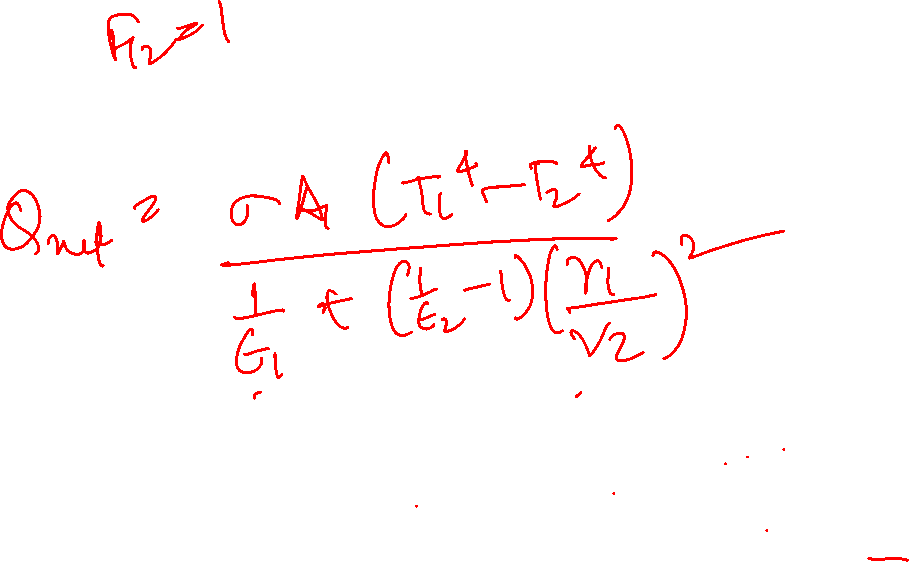 F₁₂ = 1
Qnet = σA₁(T₁⁴ - T₂⁴) / (1/ε₁ + (1/ε₂ - 1)(r₁/r₂)²)